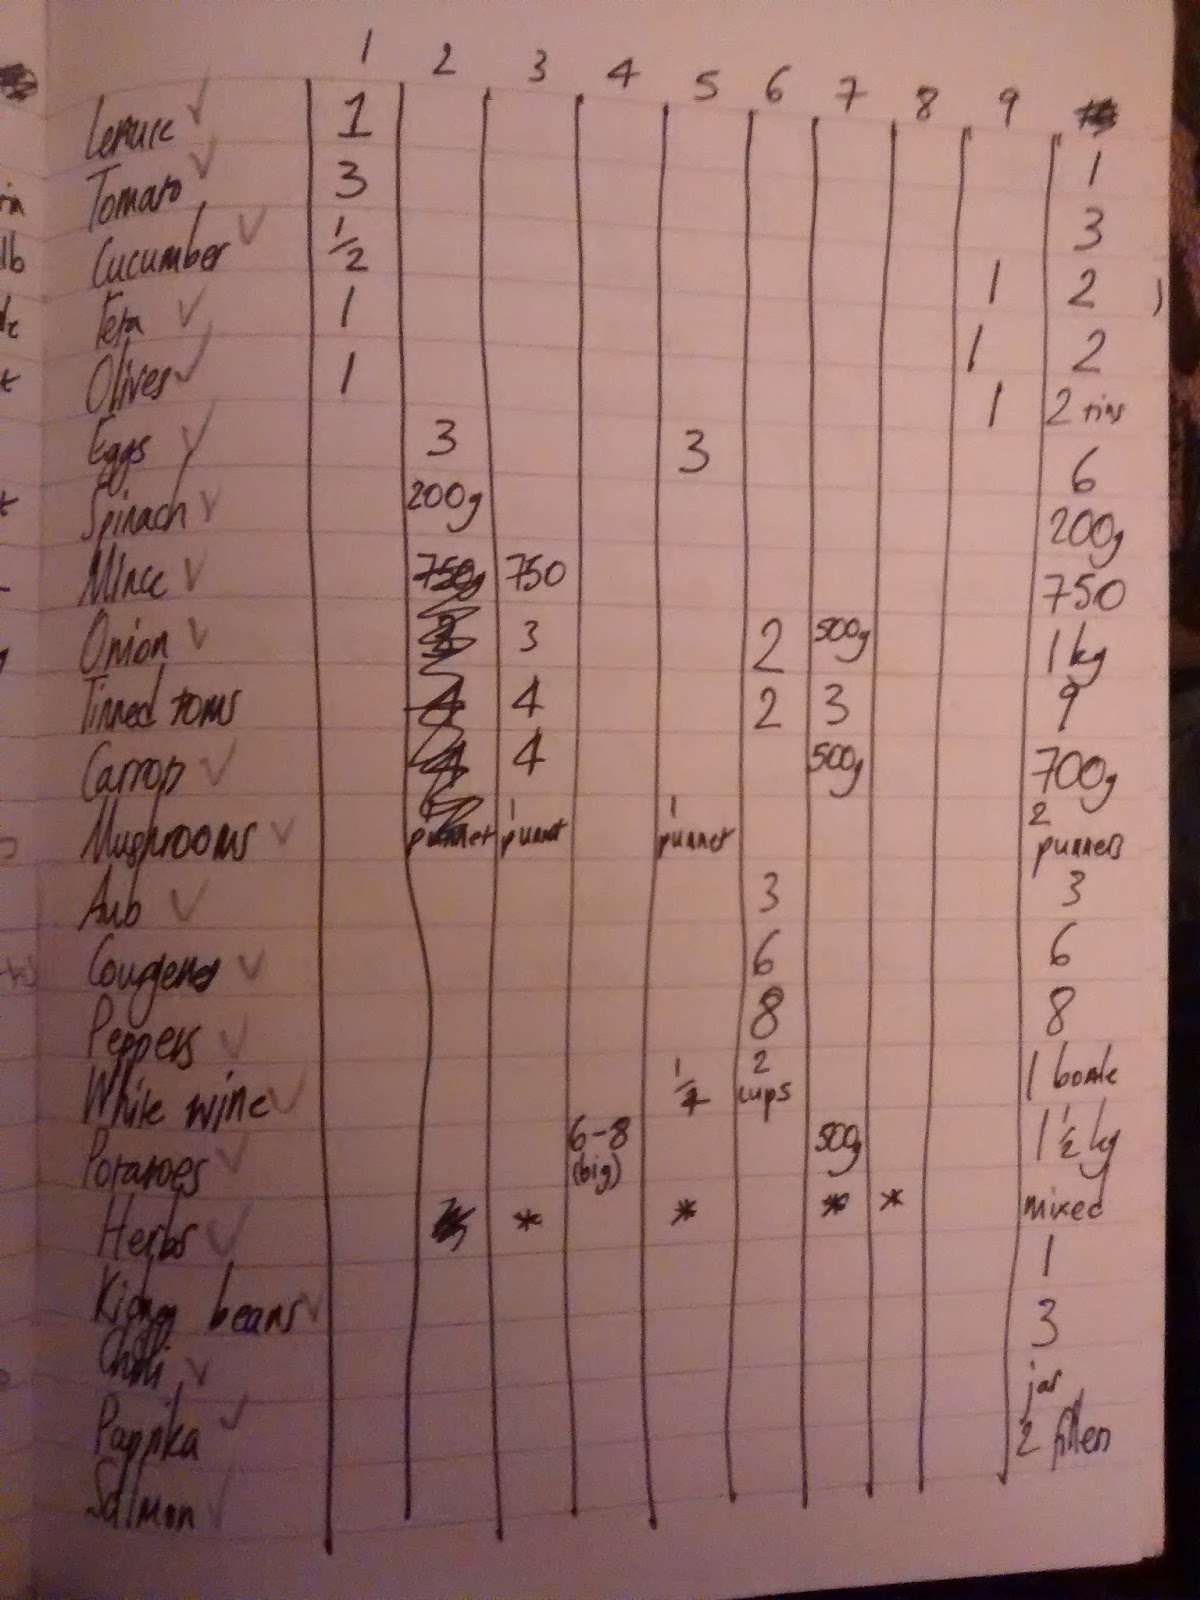 1 2 3 4 5 6 7 8 9
Lettuce ✓ 1 1
Tomato ✓ 3 3
Cucumber ✓ 1/2 1 2
Feta ✓ 1 1 2
Olives ✓ 1 1 2 tins
Eggs ✓ 3 3 6
Spinach ✓ 200g 200g
Mince ✓ 750g 750 750
Onion ✓ 3 2 500g 1kg
Tinned toms 4 4 2 3 9
Carrots ✓ 4 4 500g 700g
Mushrooms ✓ punnet 1 punnet 1 punnet 2 punnets
Aub ✓ 3 3
Courgettes ✓ 6 6
Peppers ✓ 8 8
White wine ✓ 2 cups 1 bottle
Potatoes ✓ 6-8 (big) 500g 1 1/2 kg
Herbs ✓ * * * * mixed
Kidney beans ✓ 1
Chilli ✓ 3
Paprika ✓ jar
Salmon ✓ 2 fillets